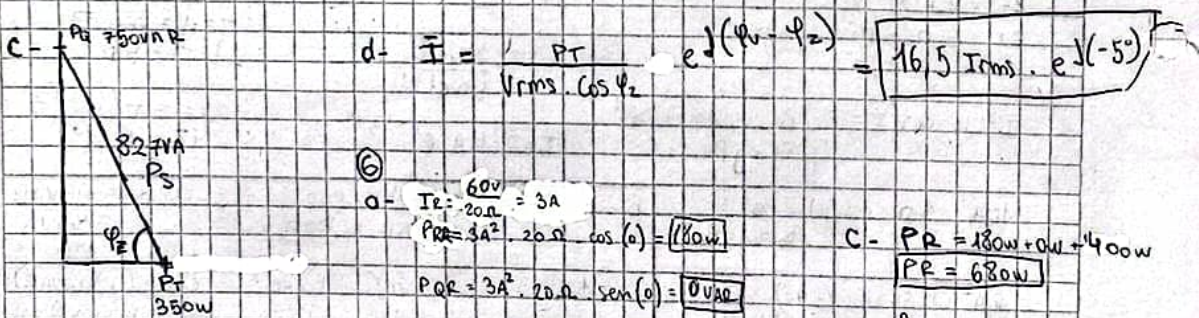 C - PQ 750VAR
827VA
PS
φz
PT
350W
d- Ī = PT / Vrms . Cos φz . e^J(φv - φz) = 16,5 Irms . e^J(-5°)
⑥
a- IR = 60V / 20Ω = 3A
PRR = 3A² . 20Ω . cos(0) = 180W
PQR = 3A² . 20Ω . sen(0) = 0VAR
C - PR = 180W + 0W + 400W
PR = 680W